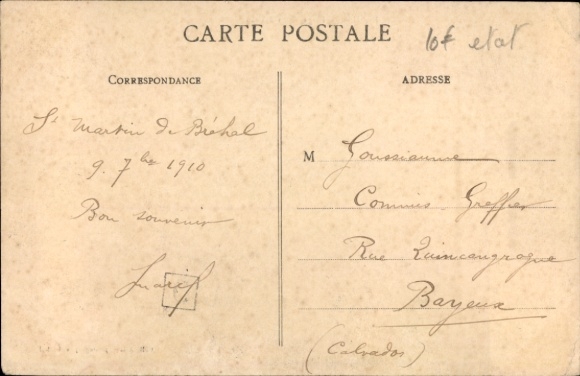 CARTE POSTALE
10€ etat
CORRESPONDANCE
St Martin de Bréhal
9. 7bre 1910
Bon souvenir
ADRESSE
M Goussiaume
Commis Greffier
Rue Quincangrogne
Bayeux
(Calvados)